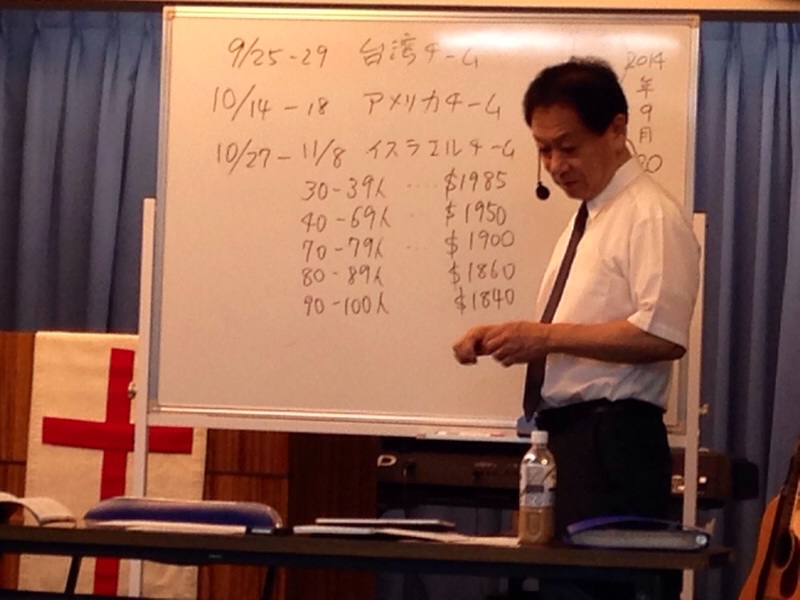 9/25-29 台湾チーム
10/14-18 アメリカチーム
10/27-11/8 イスラエルチーム
30-39人 ・・・・ $1985
40-69人 $1950
70-79人 ・・・ $1900
80-89人 $1860
90-100人 $1840
2014
年
9
月